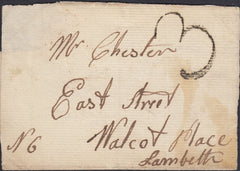 Mr Chester
3
East Street
N 6 Walcot Place
Lambeth